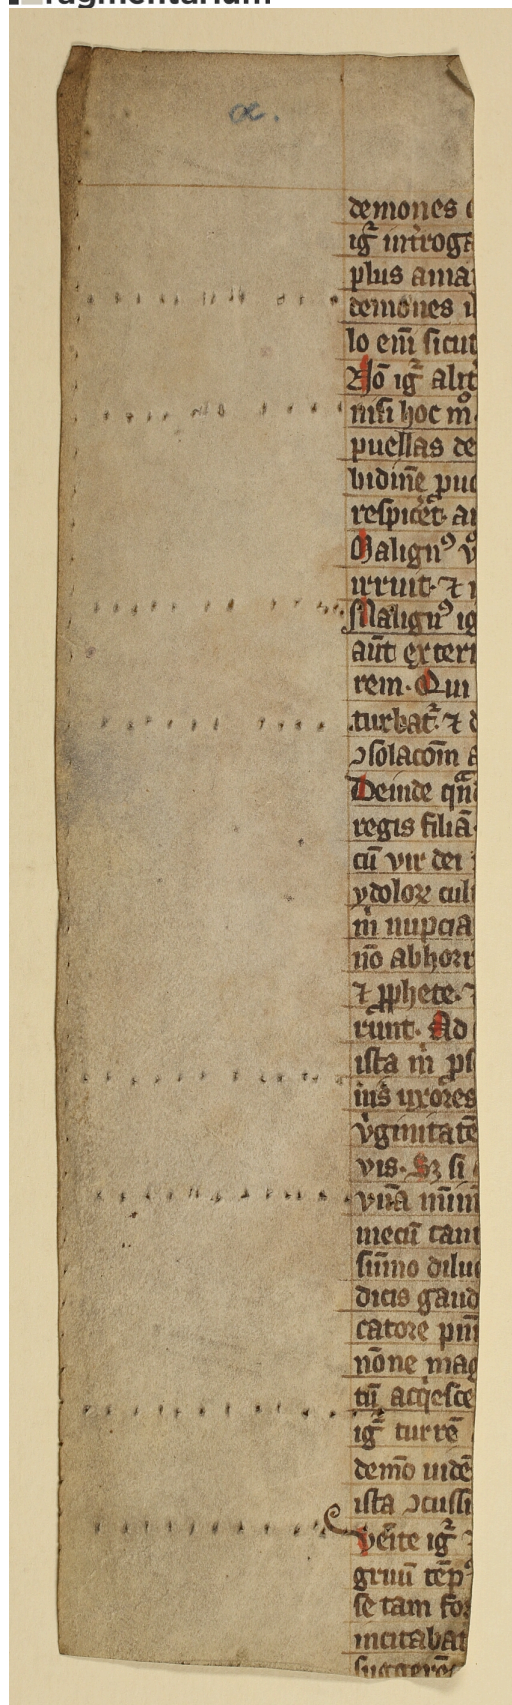 α.
demones
ig̃ int̃roga
plus ama
demones
lo em̅ sicut
Nō ig̃ alit
nisi hoc mº
puellas de
bidine̅ puc
respicēt. ai
Malignꝰ v
irruit. ⁊ i
Malignꝰ ig
aūt exteri
rem. Qui
turbat᷑. ⁊ d
ↄsolacōm a
Deinde qn̅
regis filiā
cū vir dei
ydoloꝝ cul
m̅ nupcia
nō abhorr
⁊ ꝓphete.
runt. Ad
ista m̅ ps
ius̅ uxores
v̅ginitatē
vis. Sꝫ si
vn̅a mim̅
mecū tam
sūmo diluc
dicis gaud
catore pm̅
nōne mag
tū acq̅esce
ig̃ turrē
demō uidē
ista ↄcussi
ven̅te ig̃
griui tēpꝰ
se tam for
incitabat
suggerē